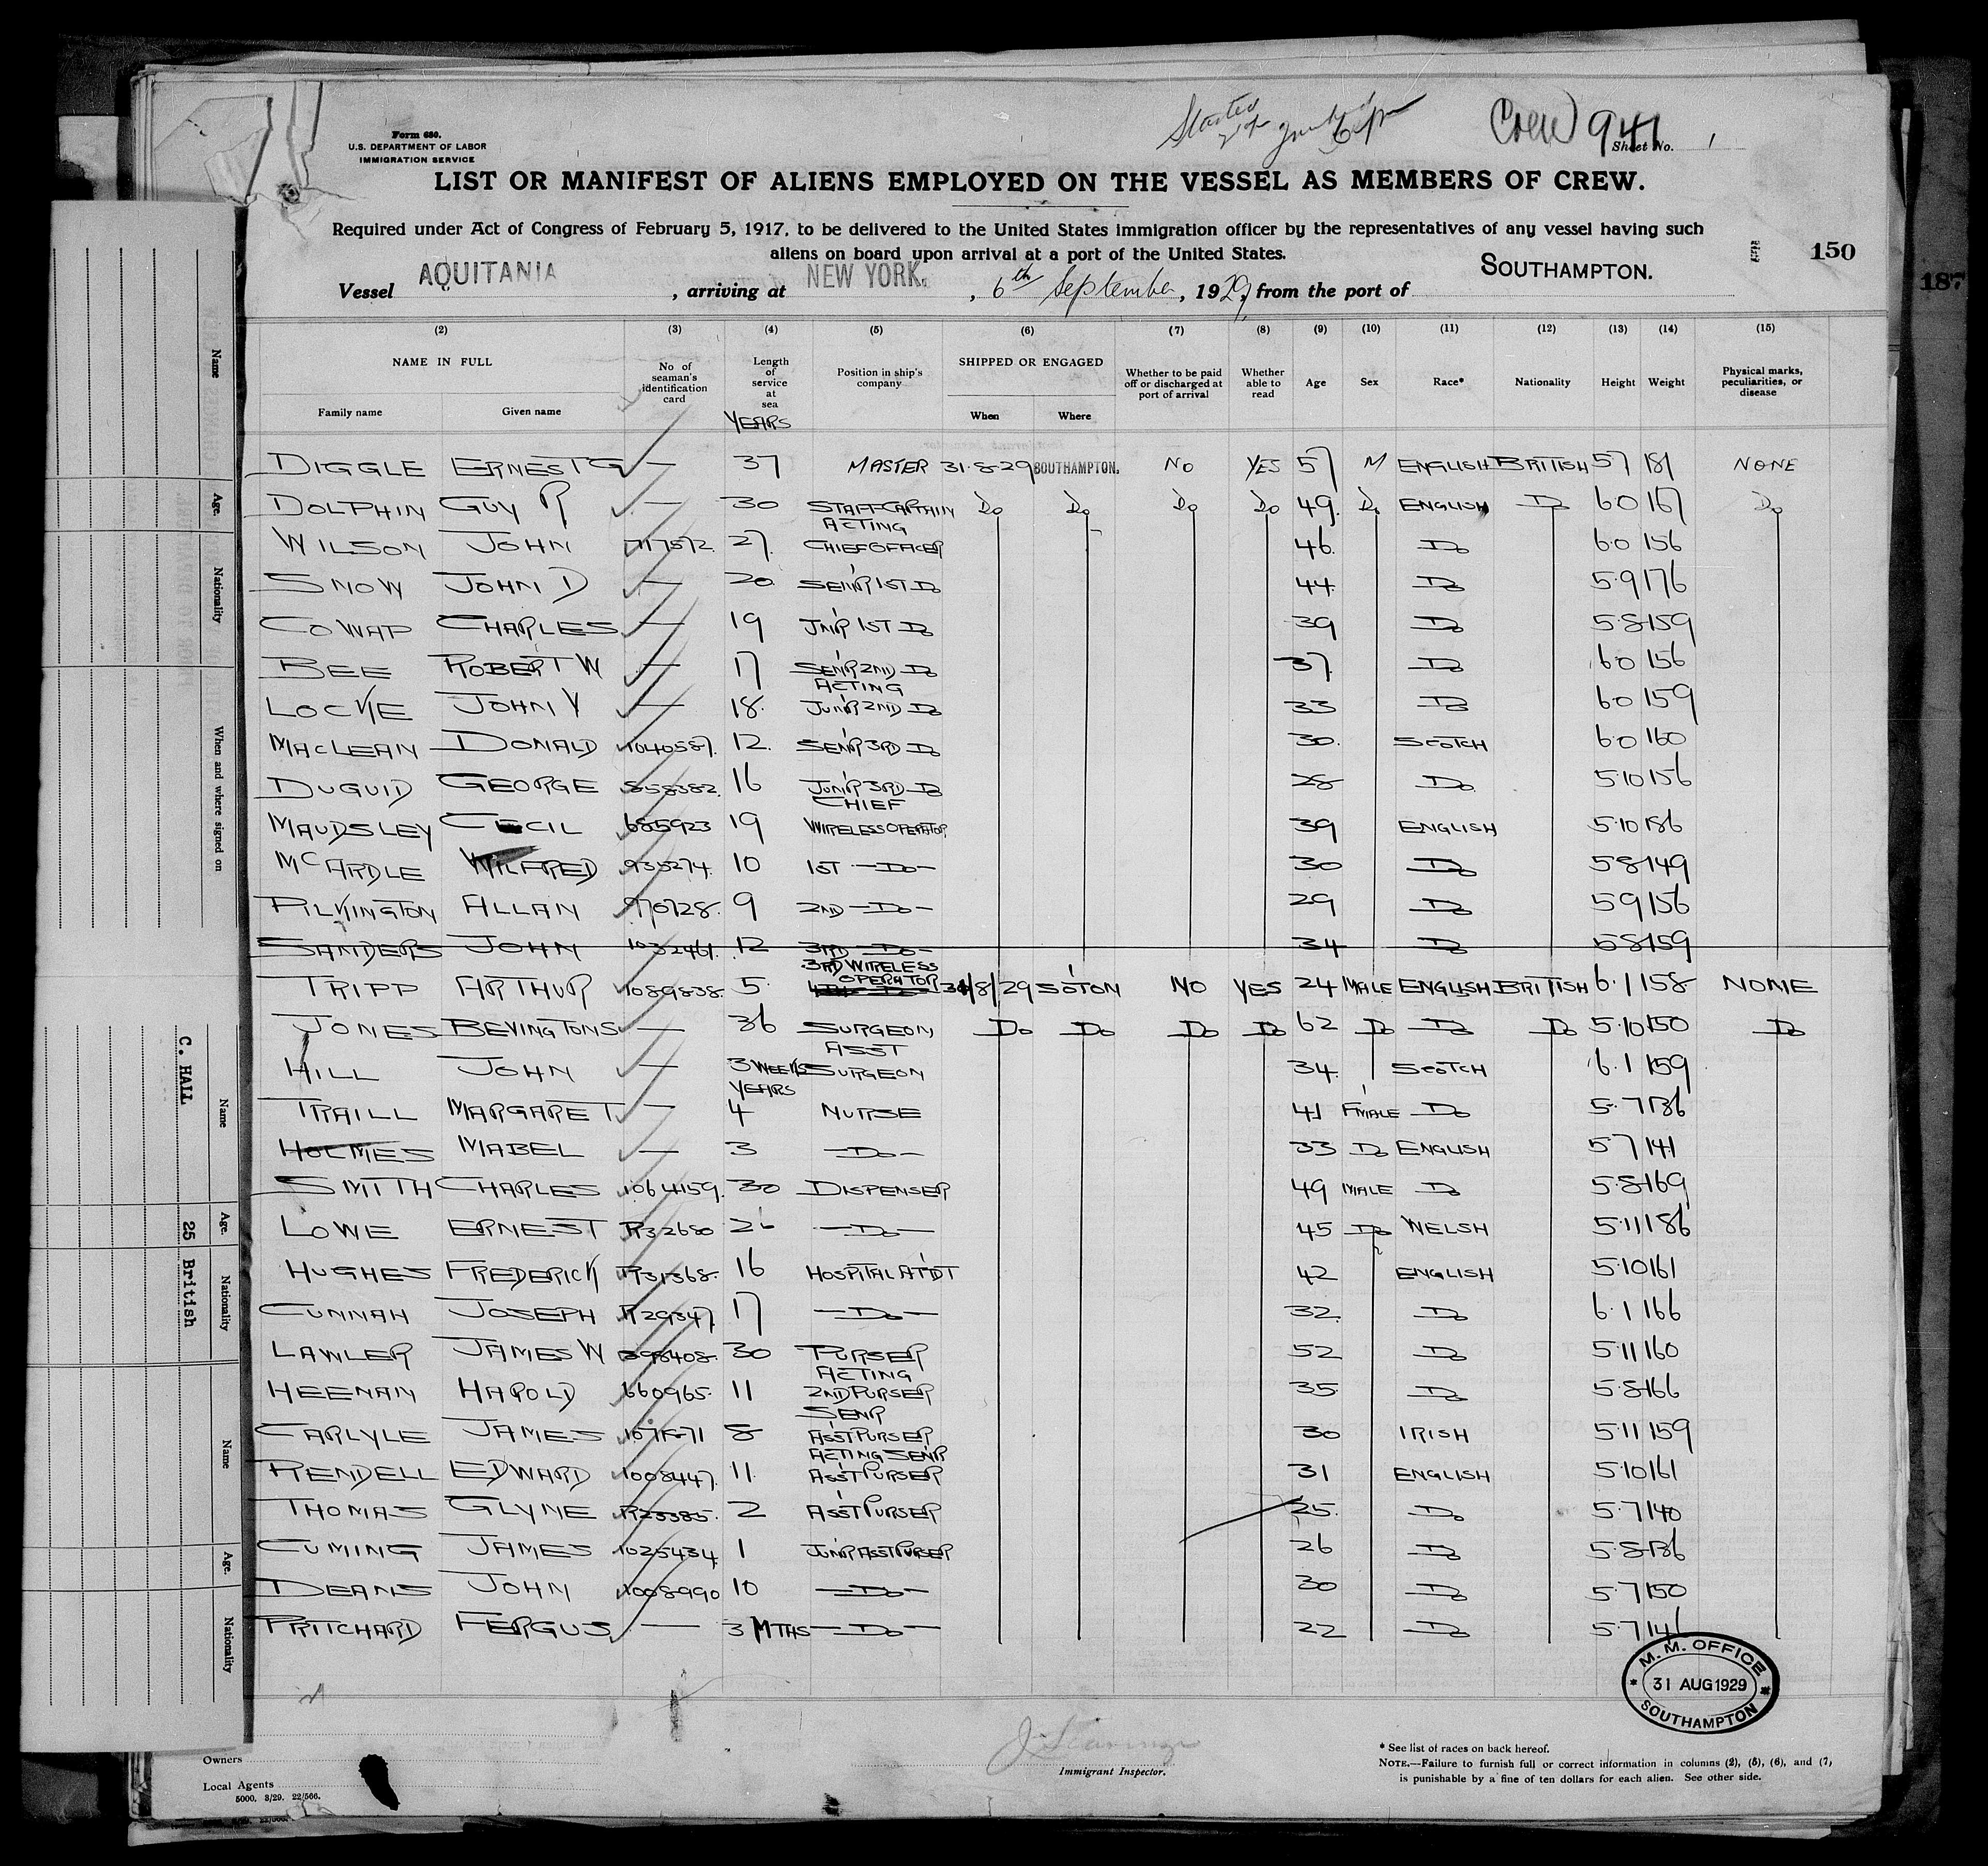 Form 680.
U.S. DEPARTMENT OF LABOR
IMMIGRATION SERVICE
Started
Crew 941
Sheet No. 1
LIST OR MANIFEST OF ALIENS EMPLOYED ON THE VESSEL AS MEMBERS OF CREW.
Required under Act of Congress of February 5, 1917, to be delivered to the United States immigration officer by the representatives of any vessel having such
aliens on board upon arrival at a port of the United States.
150
187
Vessel AQUITANIA, arriving at NEW YORK., 6th September, 1929, from the port of SOUTHAMPTON.
(2) (3) (4) (5) (6) (7) (8) (9) (10) (11) (12) (13) (14) (15)
NAME IN FULL No of seaman's identification card Length of service at sea Position in ship's company SHIPPED OR ENGAGED Whether to be paid off or discharged at port of arrival Whether able to read Age Sex Race* Nationality Height Weight Physical marks, peculiarities, or disease
Family name Given name YEARS When Where
DIGGLE ERNEST G — 37 MASTER 31.8.29 SOUTHAMPTON. NO YES 57 M ENGLISH BRITISH 5 7 181 NONE
DOLPHIN GUY R — 30 STAFF CAPTAIN Do Do Do Do 49. Do ENGLISH Do 6 0 167 Do
WILSON JOHN 717572 27. ACTING CHIEF OFFICER 46. Do 6.0 156
SNOW JOHN D — 20 SEN'R 1ST Do 44. Do 5.9 176
COWAP CHARLES — 19 JN'R 1ST Do 39 Do 5.8 159
BEE ROBERT W — 17 SEN'R 2ND Do 37. Do 6 0 156
LOCKE JOHN Y — 18. ACTING JUN'R 2ND Do 33 Do 6 0 159
MACLEAN DONALD 1040587. 12. SEN'R 3RD Do 30. SCOTCH 6.0 160
DUGUID GEORGE 858382. 16 JUN'R 3RD Do 28 Do 5.10 156
MAUDSLEY CECIL 685923 19 CHIEF WIRELESS OPERATOR 39 ENGLISH 5.10 186
McARDLE WILFRED 935274. 10 1ST —Do— 30 Do 5 8 149
PILKINGTON ALLAN 970728. 9 2ND —Do— 29 Do 5 9 156
SANDERS JOHN 1032461. 12 3RD —Do— 34 Do 5 8 159
TRIPP ARTHUR 1089838. 5. 3RD WIRELESS OPERATOR 31/8/29 S'OTON NO YES 24 MALE ENGLISH BRITISH 6.1 158 NONE
JONES BEVINGTON S — 36 SURGEON, Do Do Do Do 62 Do Do Do 5.10 150 Do
HILL JOHN — 3 WEEKS ASST SURGEON 34. SCOTCH 6.1 159
TRAILL MARGARET — YEARS 4 NURSE 41 F'MALE Do 5.7 136
HOLMES MABEL — 3 —Do— 33 Do ENGLISH 5 7 141
SMITH CHARLES 1064159. 30 DISPENSER 49 MALE Do 5.8 169
LOWE ERNEST R32680 26 —Do— 45 Do WELSH 5.11 186
HUGHES FREDERICK R31368. 16 HOSPITAL AT'DT 42 ENGLISH 5.10 161
CUNNAH JOSEPH R29347. 17 —Do— 32. Do 6.1 166
LAWLER JAMES W 398408. 30 PURSER 52 Do 5.11 160
HEENAN HAROLD 660965. 11 ACTING 2ND PURSER 35. Do 5.8 166
CARLYLE JAMES 8 SENR ASS'T PURSER 30 IRISH 5.11 159
RENDELL EDWARD 1008447. 11. ACTING SEN'R ASS'T PURSER 31 ENGLISH 5.10 161
THOMAS GLYNE R23385. 2 ASS'T PURSER 25. Do 5.7 140
CUMING JAMES 1025434 1 JUN'R ASST PURSER 26 Do 5.8 136
DEANS JOHN 1008990 10 —Do— 30 Do 5.7 150
PRITCHARD FERGUS — 3 MTHS —Do— 22 Do 5.7
M. M. OFFICE
31 AUG 1929
SOUTHAMPTON
Owners
Local Agents
5000. 3/29. 22/566.
Immigrant Inspector.
* See list of races on back hereof.
NOTE.—Failure to furnish full or correct information in columns (2), (5), (6), and (7),
is punishable by a fine of ten dollars for each alien. See other side.
Name
Age.
Nationality
When and where signed on
Name
C. HALL
Age.
25
Nationality
British
Name
Age.
Nationality